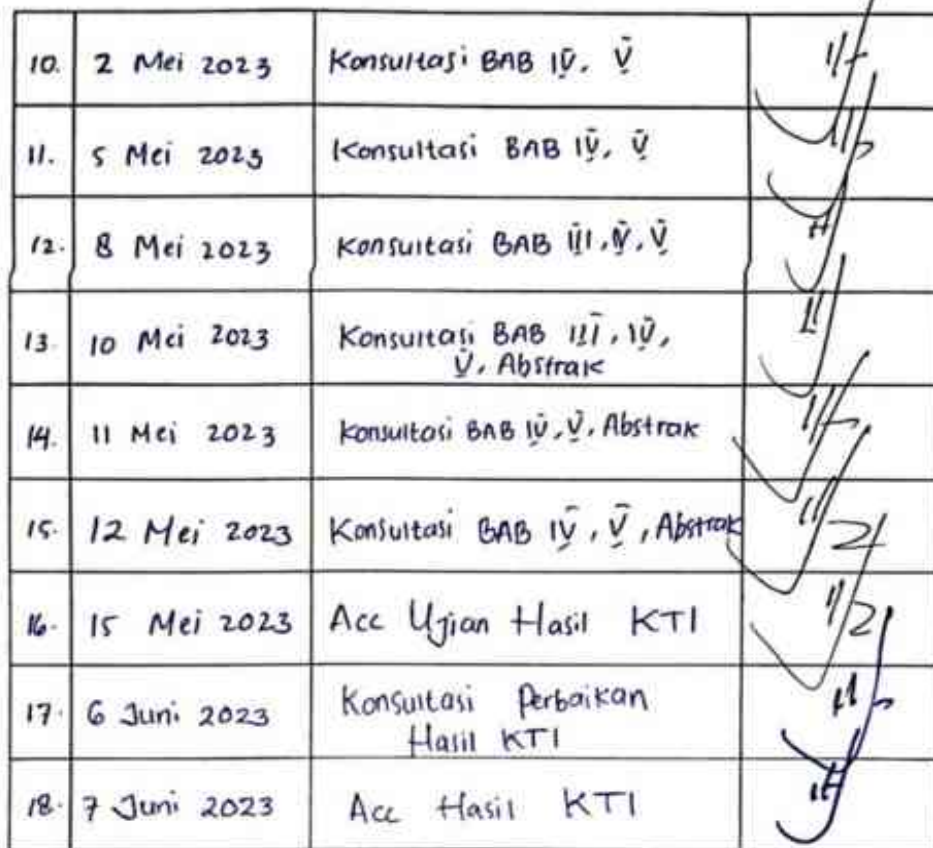 10. 2 Mei 2023 Konsultasi BAB IV, V
11. 5 Mei 2023 Konsultasi BAB IV, V
12. 8 Mei 2023 Konsultasi BAB III, IV, V
13. 10 Mei 2023 Konsultasi BAB III, IV,
V, Abstrak
14. 11 Mei 2023 Konsultasi BAB IV, V, Abstrak
15. 12 Mei 2023 Konsultasi BAB IV, V, Abstrak
16. 15 Mei 2023 Acc Ujian Hasil KTI
17. 6 Juni 2023 Konsultasi Perbaikan
Hasil KTI
18. 7 Juni 2023 Acc Hasil KTI